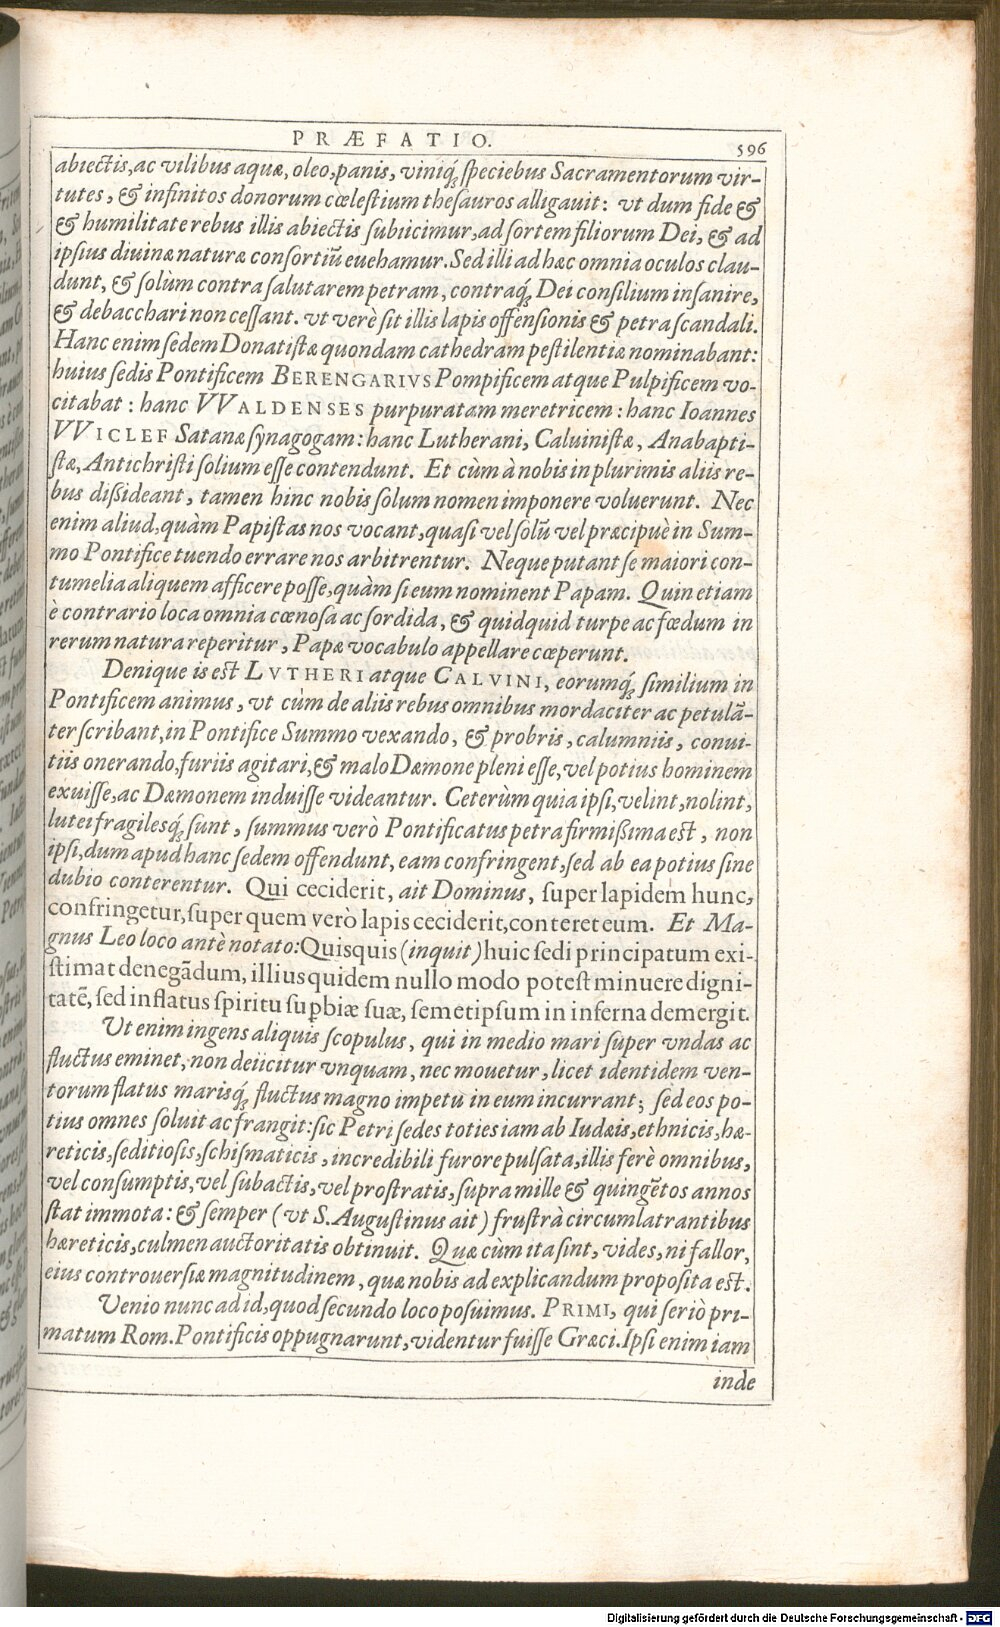 PRÆFATIO.
596
abiectis, ac vilibus aquæ, oleo, panis, viniq́; speciebus Sacramentorum vir-
tutes, & infinitos donorum cœlestium thesauros alligauit: vt dum fide &
& humilitate rebus illis abiectis subiicimur, ad sortem filiorum Dei, & ad
ipsius diuinæ naturæ consortiũ euehamur. Sed illi ad hæc omnia oculos clau-
dunt, & solùm contra salutarem petram, contraq́; Dei consilium insanire,
& debacchari non cessant. vt verè sit illis lapis offensionis & petra scandali.
Hanc enim sedem Donatistæ quondam cathedram pestilentiæ nominabant:
huius sedis Pontificem BERENGARIVS Pompificem atque Pulpificem vo-
citabat: hanc VVALDENSES purpuratam meretricem: hanc Ioannes
VVICLEF Satanæ synagogam: hanc Lutherani, Caluinistæ, Anabapti-
stæ, Antichristi solium esse contendunt. Et cùm à nobis in plurimis aliis re-
bus dißideant, tamen hinc nobis solum nomen imponere voluerunt. Nec
enim aliud, quàm Papistas nos vocant, quasi vel solũ vel præcipuè in Sum-
mo Pontifice tuendo errare nos arbitrentur. Neque putant se maiori con-
tumelia aliquem afficere posse, quàm si eum nominent Papam. Quin etiam
è contrario loca omnia cœnosa ac sordida, & quidquid turpe ac fœdum in
rerum natura reperitur, Papæ vocabulo appellare cœperunt.
Denique is est LVTHERI atque CALVINI, eorumq́; similium in
Pontificem animus, vt cùm de aliis rebus omnibus mordaciter ac petulã-
ter scribant, in Pontifice Summo vexando, & probris, calumniis, conui-
tiis onerando, furiis agitari, & malo Dæmone pleni esse, vel potius hominem
exuisse, ac Dæmonem induisse videantur. Ceterùm quia ipsi, velint, nolint,
lutei fragilesq́; sunt, summus verò Pontificatus petra firmißima est, non
ipsi, dum apud hanc sedem offendunt, eam confringent, sed ab ea potius sine
dubio conterentur. Qui ceciderit, ait Dominus, super lapidem hunc,
confringetur, super quem verò lapis ceciderit, conteret eum. Et Ma-
gnus Leo loco antè notato: Quisquis (inquit) huic sedi principatum exi-
stimat denegãdum, illius quidem nullo modo potest minuere digni-
tatẽ, sed inflatus spiritu suꝑbiæ suæ, semetipsum in inferna demergit.
Vt enim ingens aliquis scopulus, qui in medio mari super vndas ac
fluctus eminet, non deiicitur vnquam, nec mouetur, licet identidem ven-
torum flatus marisq́; fluctus magno impetu in eum incurrant; sed eos po-
tius omnes soluit ac frangit: sic Petri sedes toties iam ab Iudæis, ethnicis, hæ-
reticis, seditiosis, schismaticis, incredibili furore pulsata, illis ferè omnibus,
vel consumptis, vel subactis, vel prostratis, supra mille & quingẽtos annos
stat immota: & semper (vt S. Augustinus ait) frustrà circumlatrantibus
hæreticis, culmen auctoritatis obtinuit. Quæ cùm ita sint, vides, ni fallor,
eius controuersiæ magnitudinem, quæ nobis ad explicandum proposita est.
Venio nunc ad id, quod secundo loco posuimus. PRIMI, qui seriò pri-
matum Rom. Pontificis oppugnarunt, videntur fuisse Græci. Ipsi enim iam
inde
Digitalisierung gefördert durch die Deutsche Forschungsgemeinschaft - DFG